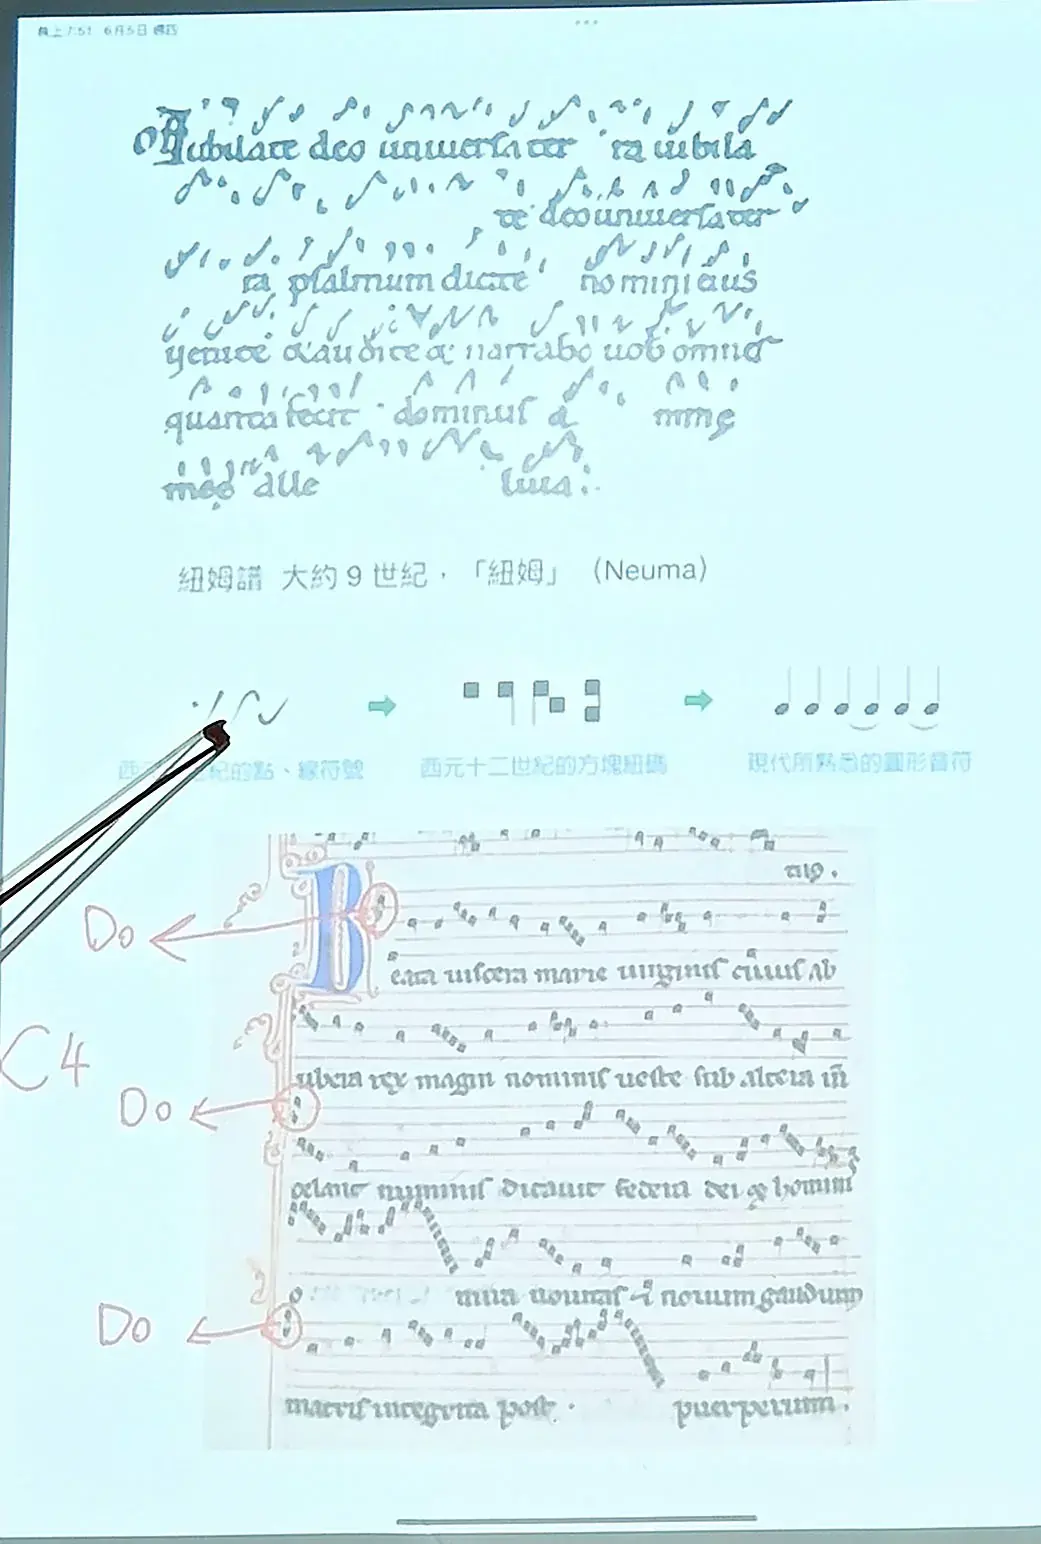 晚上7:51 6月5日 週四
Jubilate deo uniuersa ter ra iubila
te deo uniuersa ter
ra psalmum dicite nomini eius
uenite & audite & narrabo uob omnes
quanta fecit dominus a nime
mee alle luia
紐姆譜 大約 9 世紀，「紐姆」（Neuma）
世紀的點、線符號
西元十二世紀的方塊紐碼
現代所熟悉的圓形音符
Do
B
eata uiscera marie uirginis cuius ab
C4
ubera rex magni nominis ueste sub altera
Do
celans numinis dictauit federa dei & hominis
o mira nouitas & nouum gaudium
Do
matris integrita post puerperium.